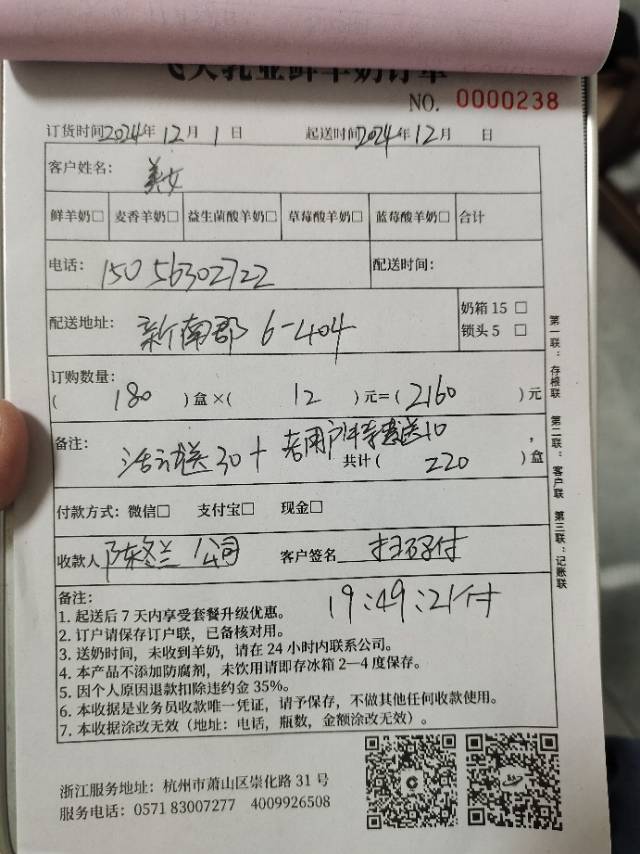 飞天乳业鲜羊奶订单
NO. 0000238
订货时间2024年12月1日 起送时间2024年12月 日
客户姓名： 美女
鲜羊奶□ 麦香羊奶□ 益生菌酸羊奶□ 草莓酸羊奶□ 蓝莓酸羊奶□ 合计
电话： 15056302722 配送时间：
配送地址： 新南郡 6-404 奶箱 15 □
锁头 5 □
订购数量：
( 180 ) 盒 × ( 12 ) 元 = ( 2160 ) 元
备注： 活动送30+老用户特惠送10，
共计 ( 220 ) 盒
付款方式：微信□ 支付宝□ 现金□
收款人 陈冬兰 公司 客户签名 扫码付
备注： 19:49:21付
1. 起送后 7 天内享受套餐升级优惠。
2. 订户请保存订户联，已备核对用。
3. 送奶时间，未收到羊奶，请在 24 小时内联系公司。
4. 本产品不添加防腐剂，未饮用请即存冰箱 2—4 度保存。
5. 因个人原因退款扣除违约金 35%。
6. 本收据是业务员收款唯一凭证，请予保存，不做其他任何收款使用。
7. 本收据涂改无效（地址：电话，瓶数，金额涂改无效）。
浙江服务地址：杭州市萧山区崇化路 31 号
服务电话：0571 83007277 4009926508
第一联：存根联 第二联：客户联 第三联：记账联